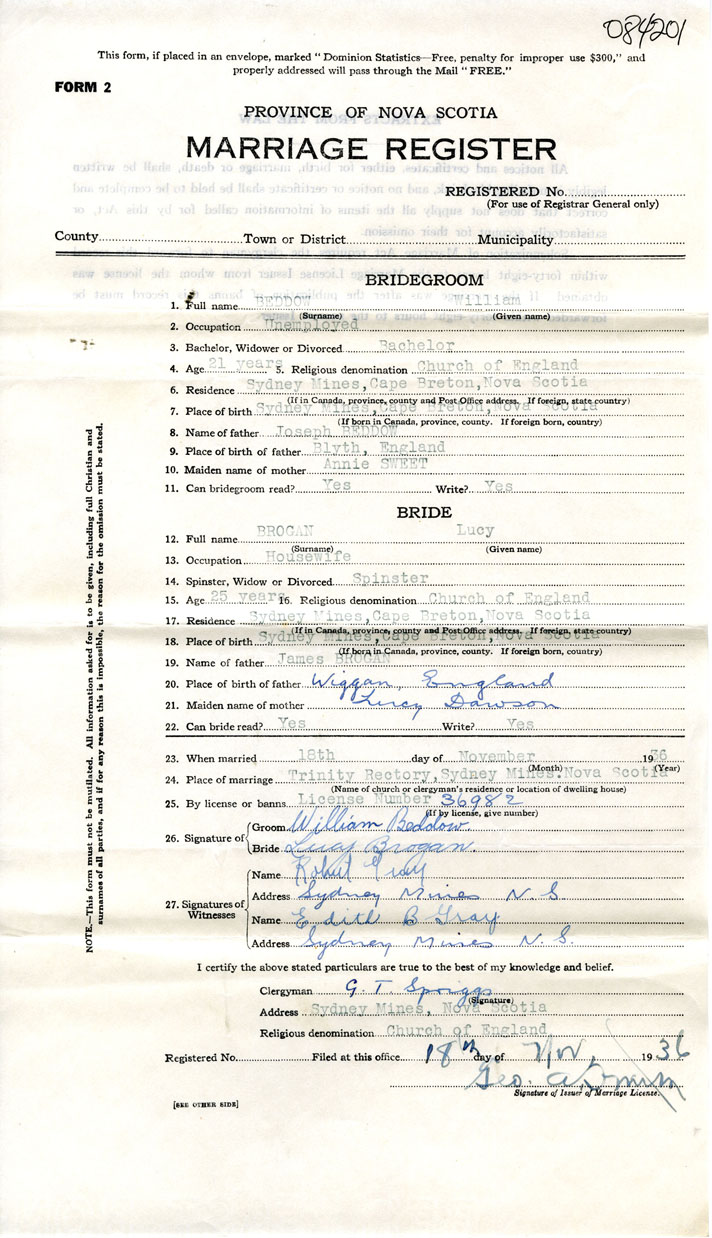 084201
This form, if placed in an envelope, marked "Dominion Statistics—Free, penalty for improper use $300," and
properly addressed will pass through the Mail "FREE."
FORM 2
PROVINCE OF NOVA SCOTIA
MARRIAGE REGISTER
REGISTERED No.
(For use of Registrar General only)
County Town or District Municipality
BRIDEGROOM
1. Full name BEDDOW William
(Surname) (Given name)
2. Occupation Unemployed
3. Bachelor, Widower or Divorced Bachelor
4. Age 21 years 5. Religious denomination Church of England
6. Residence Sydney Mines, Cape Breton, Nova Scotia
(If in Canada, province, county and Post Office address. If foreign, state country)
7. Place of birth Sydney Mines, Cape Breton, Nova Scotia
(If born in Canada, province, county. If foreign born, country)
8. Name of father Joseph BEDDOW
9. Place of birth of father Blyth, England
10. Maiden name of mother Annie SWEET
11. Can bridegroom read? Yes Write? Yes
BRIDE
12. Full name BROGAN Lucy
(Surname) (Given name)
13. Occupation Housewife
14. Spinster, Widow or Divorced Spinster
15. Age 25 years 16. Religious denomination Church of England
17. Residence Sydney Mines, Cape Breton, Nova Scotia
(If in Canada, province, county and Post Office address. If foreign, state country)
18. Place of birth Sydney Mines, Cape Breton, Nova Scotia
(If born in Canada, province, county. If foreign born, country)
19. Name of father James BROGAN
20. Place of birth of father Wiggan, England
21. Maiden name of mother Lucy Dawson
22. Can bride read? Yes Write? Yes
23. When married 18th day of November 1936
(Month) (Year)
24. Place of marriage Trinity Rectory, Sydney Mines. Nova Scotia
(Name of church or clergyman's residence or location of dwelling house)
25. By license or banns License Number 36982
(If by license, give number)
26. Signature of Groom William Beddow
Bride Lucy Brogan
27. Signatures of Witnesses Name Robert Gray
Address Sydney Mines N.S.
Name Edith B Gray
Address Sydney Mines N.S.
I certify the above stated particulars are true to the best of my knowledge and belief.
Clergyman G. T. Spriggs
(Signature)
Address Sydney Mines, Nova Scotia
Religious denomination Church of England
Registered No. Filed at this office 18th day of Nov, 1936
Geo.
Signature of Issuer of Marriage License.
[SEE OTHER SIDE]
NOTE.—This form must not be mutilated. All information asked for is to be given, including full Christian and
surnames of all parties, and if for any reason this is impossible, the reason for the omission must be stated.